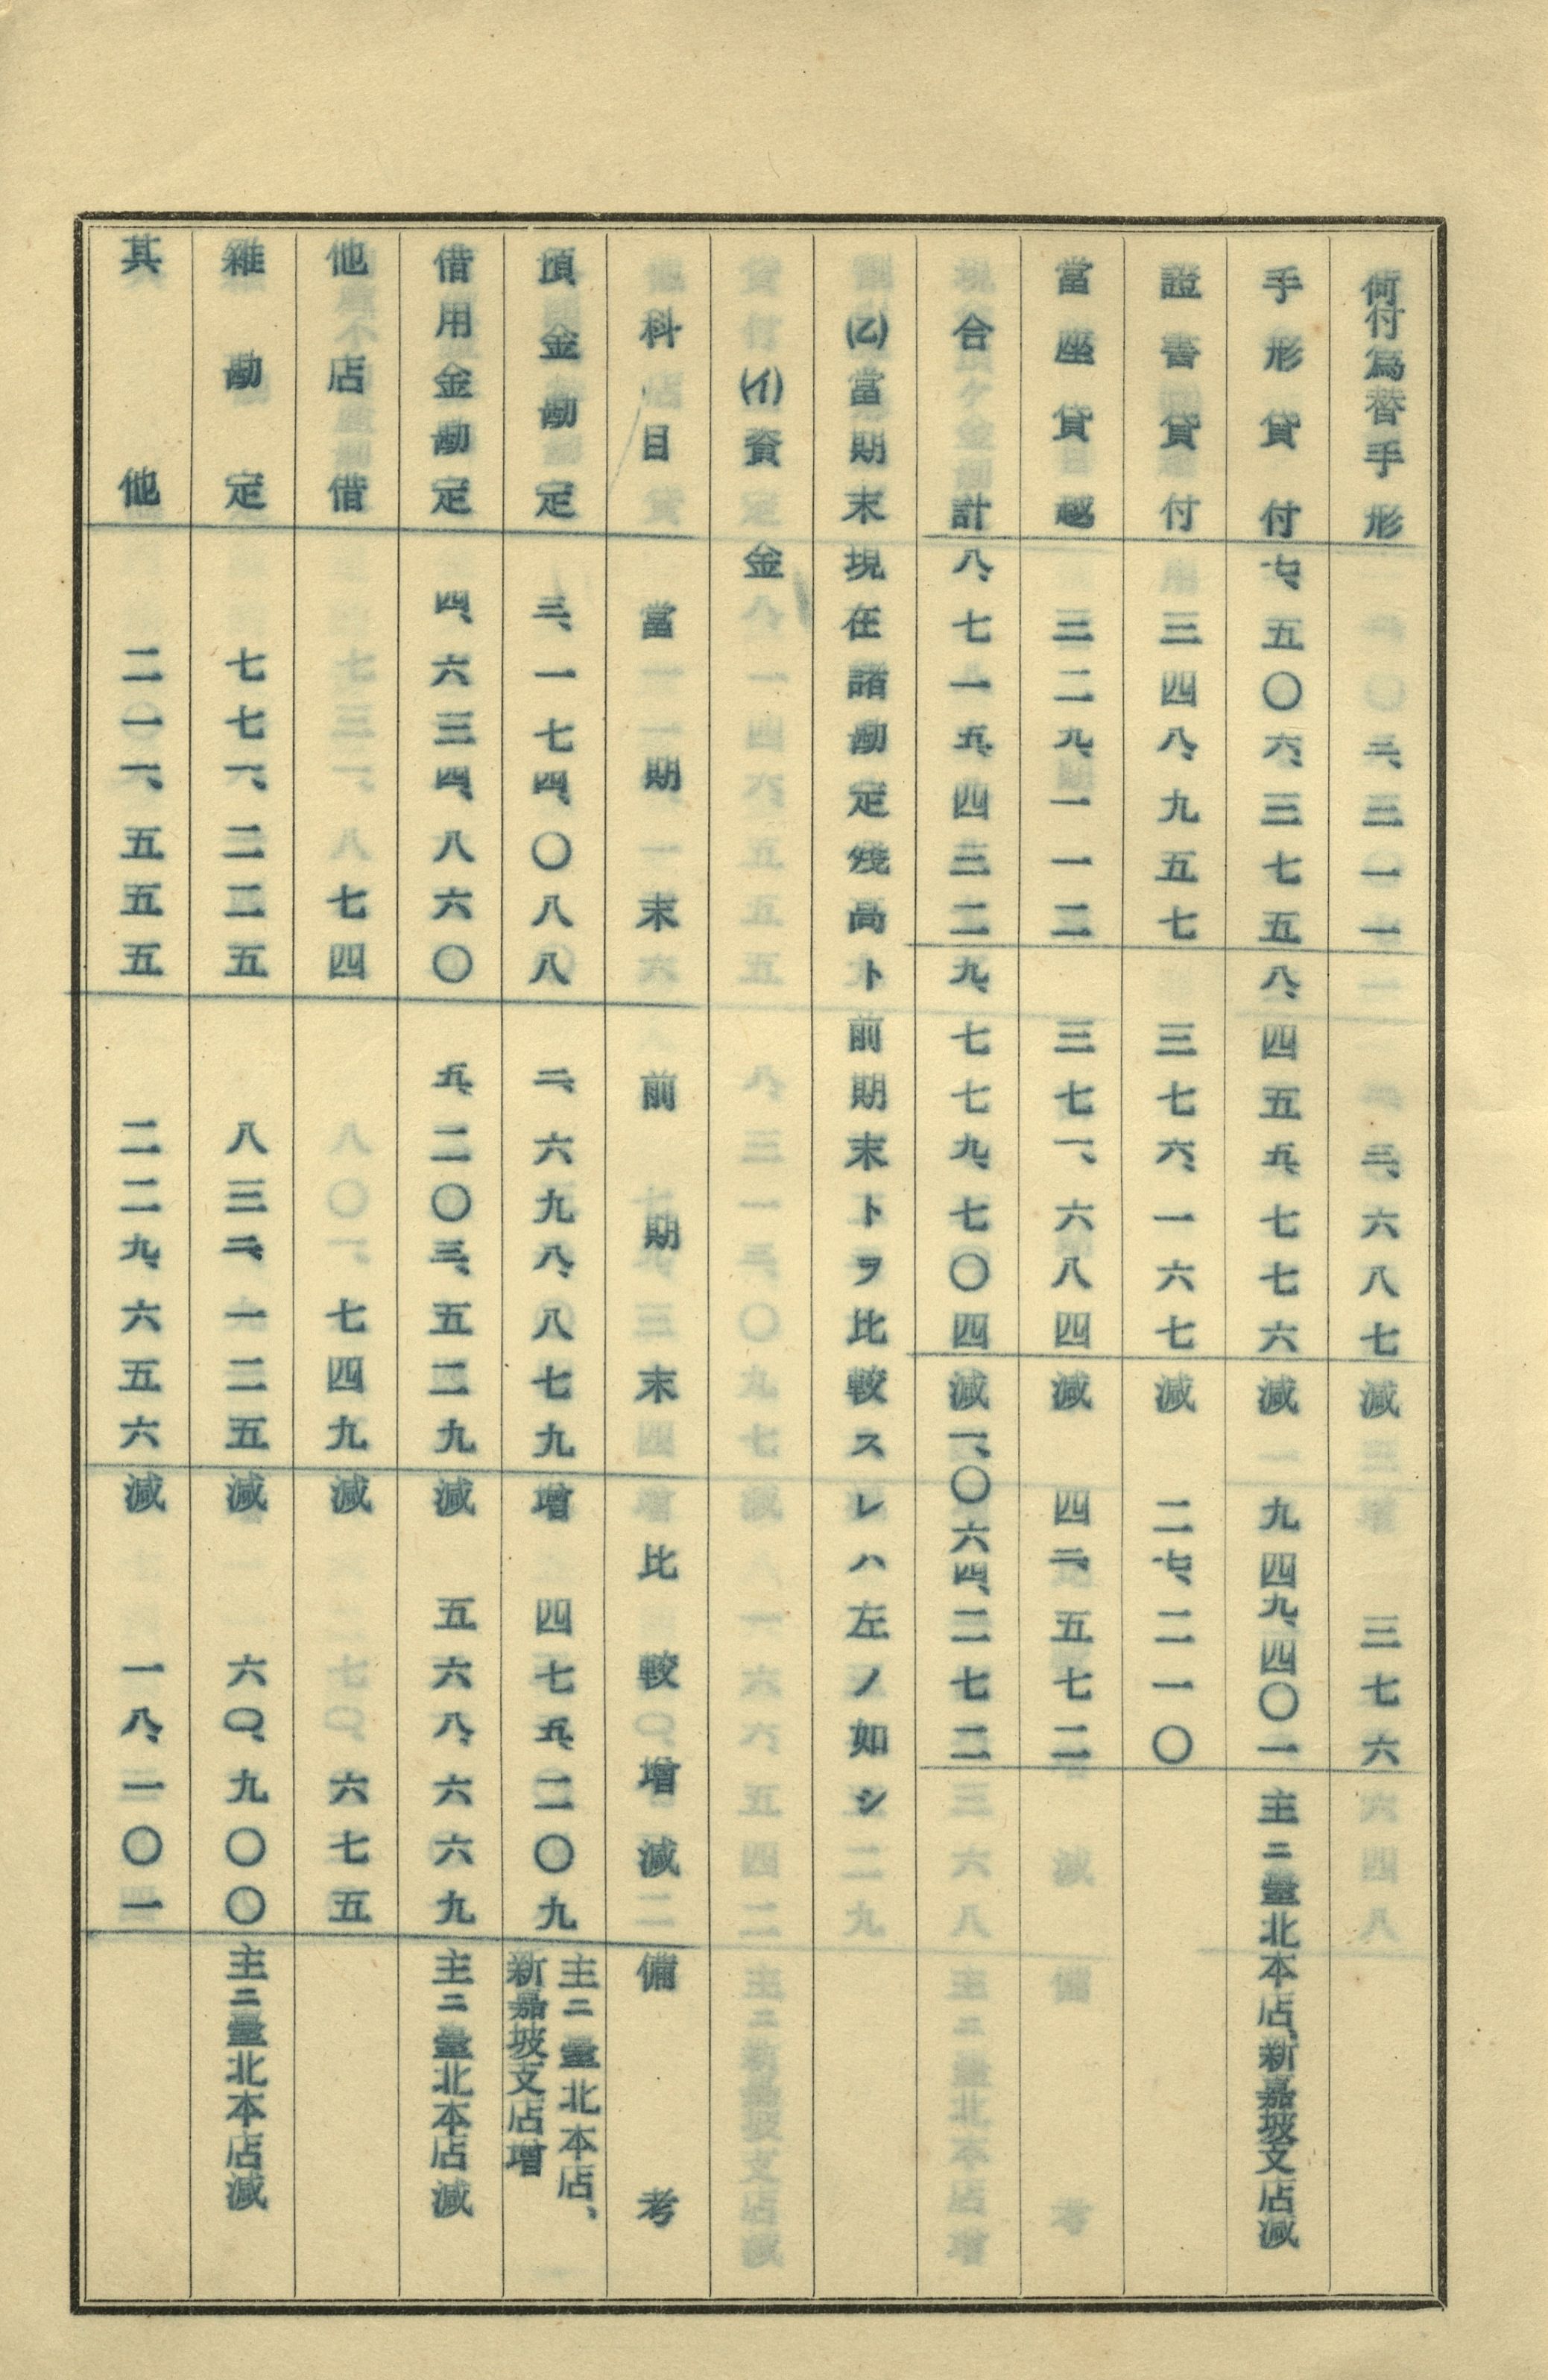 荷付爲替手形 二、三一一 二、六八七 減 三七六
手形貸付 七、五〇六、三七五 八、四五五、七七六 減 九四九、四〇一 主ニ臺北本店、新嘉坡支店減
證書貸付 三四八、九五七 三七六、一六七 減 二七、二一〇
當座貸越 三二九、一一二 三七一、六八四 減 四二、五七二
合計 八、七一五、四三二 九、七七九、七〇四 減 一、〇六四、二七二
(乙)當期末現在諸勘定殘高ト前期末トヲ比較スレハ左ノ如シ
(イ)資金
科目 當期末 前期末 比較増減 備考
預金勘定 三、一七四、〇八八 二、六九八、八七九 増 四七五、二〇九 主ニ臺北本店、
新嘉坡支店増
借用金勘定 四、六三四、八六〇 五、二〇三、五二九 減 五六八、六六九 主ニ臺北本店減
他店借 七四 七四九 減 六七五
雜勘定 七七一、二二五 八三二、一二五 減 六〇、九〇〇 主ニ臺北本店減
其他 二一一、五五五 二二九、六五六 減 一八、一〇一